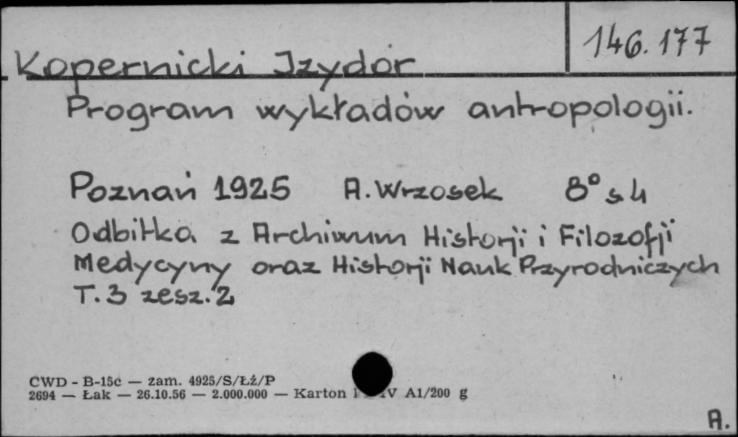 146.177
Kopernicki Izydor
Program wykładów antropologii.
Poznań 1925 A. Wrzosek 8° s 4
Odbitka z Archiwum Historji i Filozofji
Medycyny oraz Historji Nauk Przyrodniczych
T. 3 zesz. 2
CWD - B-15c — zam. 4925/S/Łż/P
2694 — Łak — 26.10.56 — 2.000.000 — Karton IV A1/200 g
A.